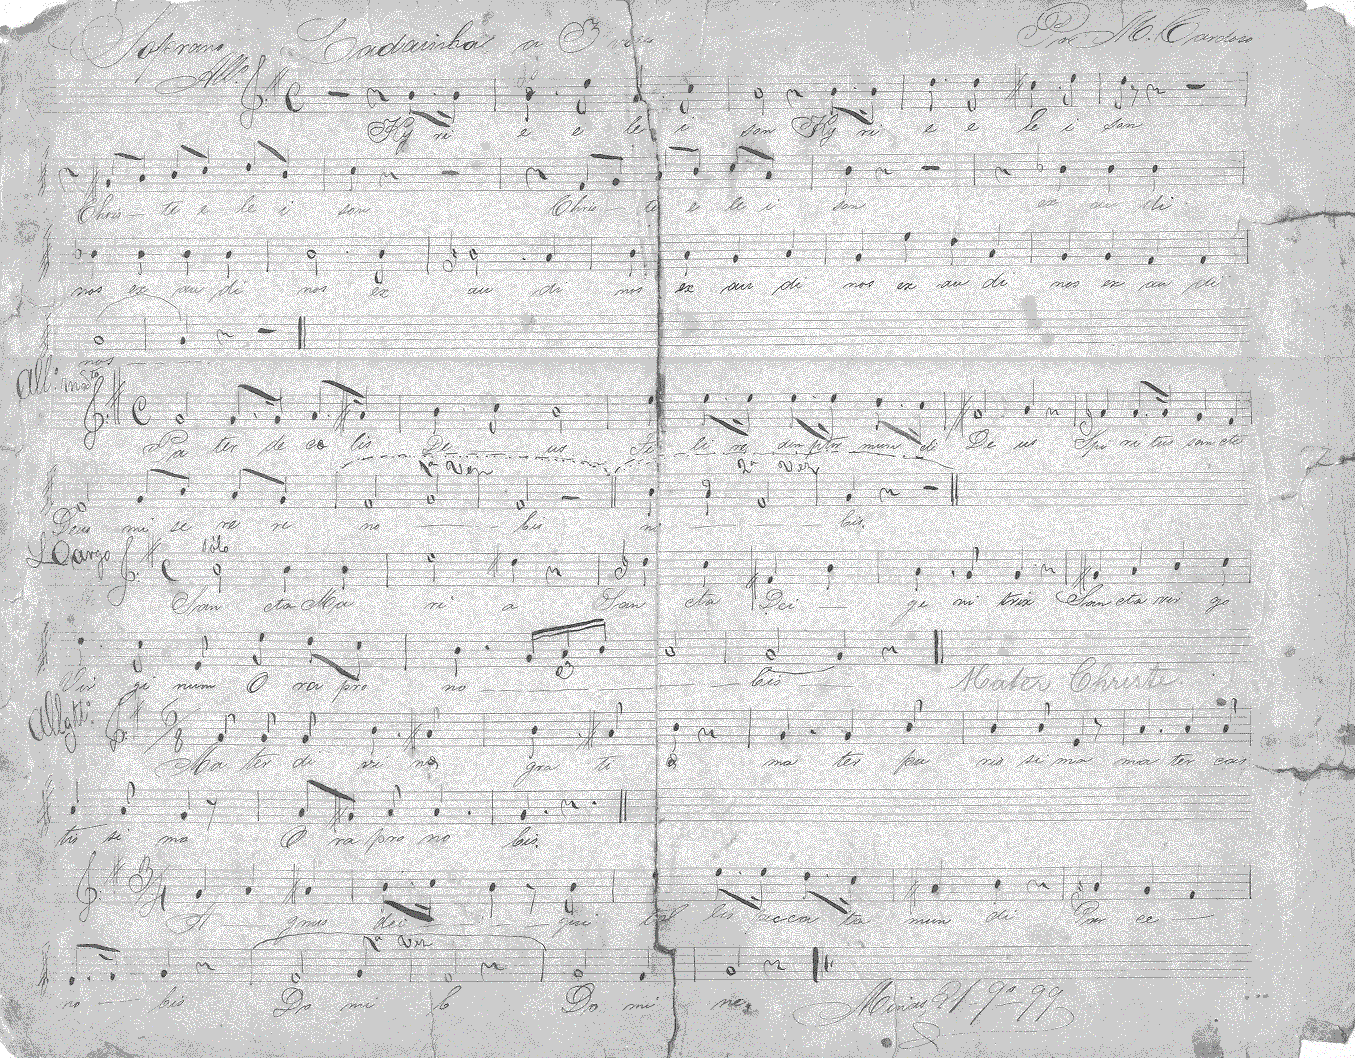 Soprano Ladainha a 3 vozes Por M. Cardoso
All.º
Ky ri e e le i son Ky ri e e le i son
Chris — te e le i son Chris — te e le i son ex au di
nos ex au di nos ex au di nos ex au di nos ex au di nos ex au di
nos
All.º mto
Pa ter de ce lis De us Fi li re demptor mundi De us Spi ri tus sancte
1ª Vez 2ª Vez
Deus mi se re re no — — bis no — — bis.
Largo Solo
San cta Ma ri a San cta Dei — ge ni trix San cta vir go
Vir gi num O ra pro no — — — bis — Mater Christi
Allgtt.º
Ma ter di vi na gra ti a ma ter pu ris si ma ma ter cas
tis si ma O ra pro no bis.
A gnus dei — — — qui tol lis pecca ta mun di Par ce —
1ª Vez
no — bis Do mi Do mi ne.
Minas 21-9º-99